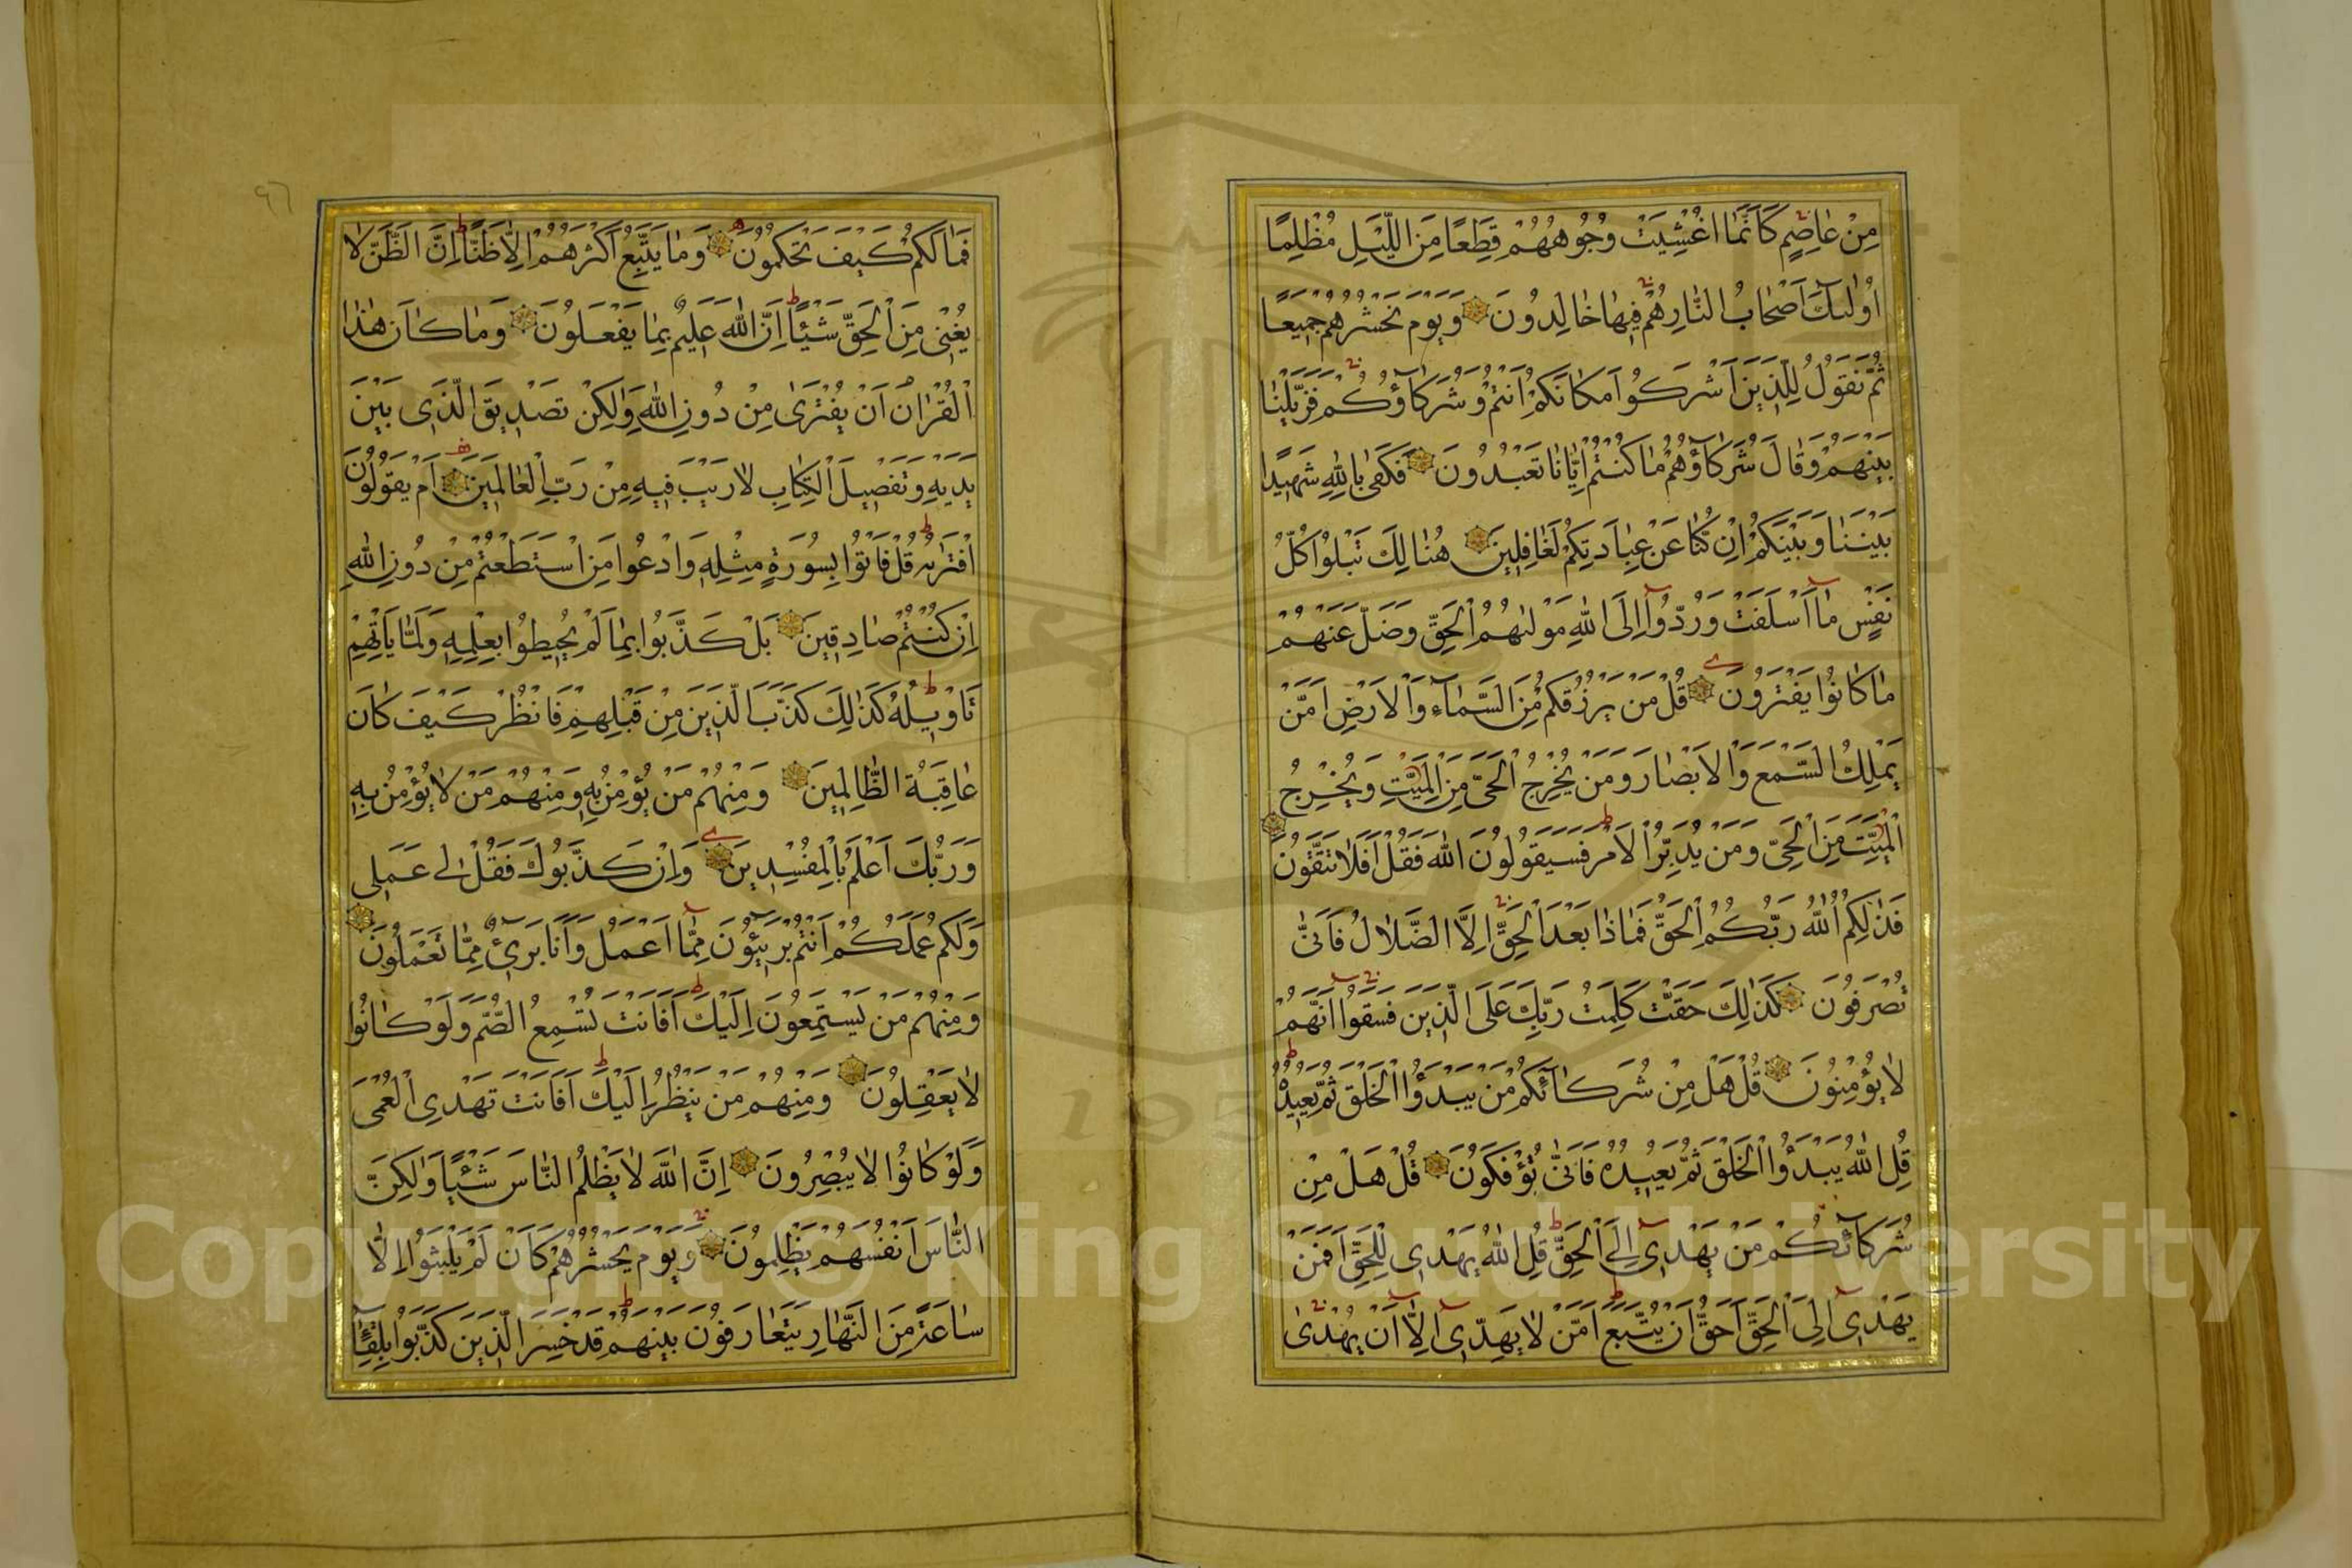 مِنْ عَاصِمٍ كَاَنَّمَا اُغْشِيَتْ وُجُوهُهُمْ قِطَعًا مِنَ الَّيْلِ مُظْلِمًا
اُولٰئِكَ اَصْحَابُ النَّارِ هُمْ فِيهَا خَالِدُونَ وَيَوْمَ نَحْشُرُهُمْ جَمِيعًا
ثُمَّ نَقُولُ لِلَّذِينَ اَشْرَكُوا مَكَانَكُمْ اَنْتُمْ وَشُرَكَاؤُكُمْ فَزَيَّلْنَا
بَيْنَهُمْ وَقَالَ شُرَكَاؤُهُمْ مَا كُنْتُمْ اِيَّانَا تَعْبُدُونَ فَكَفٰى بِاللّٰهِ شَهِيدًا
بَيْنَنَا وَبَيْنَكُمْ اِنْ كُنَّا عَنْ عِبَادَتِكُمْ لَغَافِلِينَ هُنَالِكَ تَبْلُوا كُلُّ
نَفْسٍ مَا اَسْلَفَتْ وَرُدُّوا اِلَى اللّٰهِ مَوْلٰيهُمُ الْحَقِّ وَضَلَّ عَنْهُمْ
مَا كَانُوا يَفْتَرُونَ قُلْ مَنْ يَرْزُقُكُمْ مِنَ السَّمَاءِ وَالْاَرْضِ اَمَّنْ
يَمْلِكُ السَّمْعَ وَالْاَبْصَارَ وَمَنْ يُخْرِجُ الْحَيَّ مِنَ الْمَيِّتِ وَيُخْرِجُ
الْمَيِّتَ مِنَ الْحَيِّ وَمَنْ يُدَبِّرُ الْاَمْرَ فَسَيَقُولُونَ اللّٰهُ فَقُلْ اَفَلَا تَتَّقُونَ
فَذٰلِكُمُ اللّٰهُ رَبُّكُمُ الْحَقُّ فَمَاذَا بَعْدَ الْحَقِّ اِلَّا الضَّلَالُ فَاَنّٰى
تُصْرَفُونَ كَذٰلِكَ حَقَّتْ كَلِمَتُ رَبِّكَ عَلَى الَّذِينَ فَسَقُوا اَنَّهُمْ
لَا يُؤْمِنُونَ قُلْ هَلْ مِنْ شُرَكَائِكُمْ مَنْ يَبْدَؤُا الْخَلْقَ ثُمَّ يُعِيدُهُ
قُلِ اللّٰهُ يَبْدَؤُا الْخَلْقَ ثُمَّ يُعِيدُهُ فَاَنّٰى تُؤْفَكُونَ قُلْ هَلْ مِنْ
شُرَكَائِكُمْ مَنْ يَهْدِى اِلَى الْحَقِّ قُلِ اللّٰهُ يَهْدِى لِلْحَقِّ اَفَمَنْ
يَهْدِى اِلَى الْحَقِّ اَحَقُّ اَنْ يُتَّبَعَ اَمَّنْ لَا يَهِدِّى اِلَّا اَنْ يُهْدٰى
فَمَا لَكُمْ كَيْفَ تَحْكُمُونَ وَمَا يَتَّبِعُ اَكْثَرُهُمْ اِلَّا ظَنًّا اِنَّ الظَّنَّ لَا
يُغْنِى مِنَ الْحَقِّ شَيْئًا اِنَّ اللّٰهَ عَلِيمٌ بِمَا يَفْعَلُونَ وَمَا كَانَ هٰذَا
الْقُرْاٰنُ اَنْ يُفْتَرٰى مِنْ دُونِ اللّٰهِ وَلٰكِنْ تَصْدِيقَ الَّذِى بَيْنَ
يَدَيْهِ وَتَفْصِيلَ الْكِتَابِ لَا رَيْبَ فِيهِ مِنْ رَبِّ الْعَالَمِينَ اَمْ يَقُولُونَ
افْتَرٰيهُ قُلْ فَاْتُوا بِسُورَةٍ مِثْلِهِ وَادْعُوا مَنِ اسْتَطَعْتُمْ مِنْ دُونِ اللّٰهِ
اِنْ كُنْتُمْ صَادِقِينَ بَلْ كَذَّبُوا بِمَا لَمْ يُحِيطُوا بِعِلْمِهِ وَلَمَّا يَاْتِهِمْ
تَاْوِيلُهُ كَذٰلِكَ كَذَّبَ الَّذِينَ مِنْ قَبْلِهِمْ فَانْظُرْ كَيْفَ كَانَ
عَاقِبَةُ الظَّالِمِينَ وَمِنْهُمْ مَنْ يُؤْمِنُ بِهِ وَمِنْهُمْ مَنْ لَا يُؤْمِنُ بِهِ
وَرَبُّكَ اَعْلَمُ بِالْمُفْسِدِينَ وَاِنْ كَذَّبُوكَ فَقُلْ لِى عَمَلِى
وَلَكُمْ عَمَلُكُمْ اَنْتُمْ بَرِيئُونَ مِمَّا اَعْمَلُ وَاَنَا بَرِئٌ مِمَّا تَعْمَلُونَ
وَمِنْهُمْ مَنْ يَسْتَمِعُونَ اِلَيْكَ اَفَاَنْتَ تُسْمِعُ الصُّمَّ وَلَوْ كَانُوا
لَا يَعْقِلُونَ وَمِنْهُمْ مَنْ يَنْظُرُ اِلَيْكَ اَفَاَنْتَ تَهْدِى الْعُمْىَ
وَلَوْ كَانُوا لَا يُبْصِرُونَ اِنَّ اللّٰهَ لَا يَظْلِمُ النَّاسَ شَيْئًا وَلٰكِنَّ
النَّاسَ اَنْفُسَهُمْ يَظْلِمُونَ وَيَوْمَ يَحْشُرُهُمْ كَاَنْ لَمْ يَلْبَثُوا اِلَّا
سَاعَةً مِنَ النَّهَارِ يَتَعَارَفُونَ بَيْنَهُمْ قَدْ خَسِرَ الَّذِينَ كَذَّبُوا بِلِقَاءِ
Copyright © King Saud University